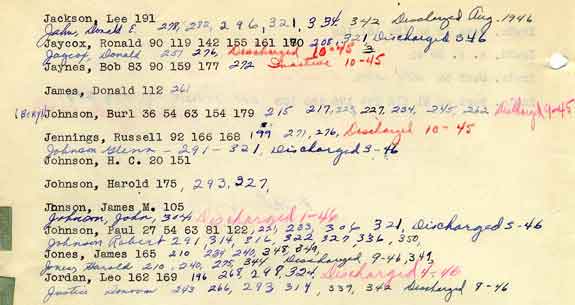 Jackson, Lee 191
John, Donald E. 278, 292, 296, 321, 334, 342 Discharged Aug. 1946
Jaycox, Ronald 90 119 142 155 161 170 208, 321 Discharged 3-46
Jaycox, Donald 257 276 Discharged 10-45
Jaynes, Bob 83 90 159 177 272 Inactive 10-45
James, Donald 112 261
(Beryl) Johnson, Burl 36 54 63 154 179 215 217, 223, 227, 234, 245, 262 Discharged 9-45
Jennings, Russell 92 166 168 199 271, 276, Discharged 10-45
Johnson Glenn - 291 - 321, Discharged 3-46
Johnson, H. C. 20 151
Johnson, Harold 175, 293, 327,
Jhnson, James M. 105
Johnson, John, 304 Discharged 1-46
Johnson, Paul 27 54 63 81 122, 221, 233, 306, 321, Discharged 5-46
Johnson Robert 291, 314, 316, 322, 327, 336, 350,
Jones, James 165 210 234, 240, 348, 349,
Jones, Harold 210, 240, 275, 344 Discharged, 9-46, 349,
Jordan, Leo 162 169 196 268, 298, 324, Discharged 4-46
Justis Donovan 243 266, 293 314, 339, 342 Discharged 8-46